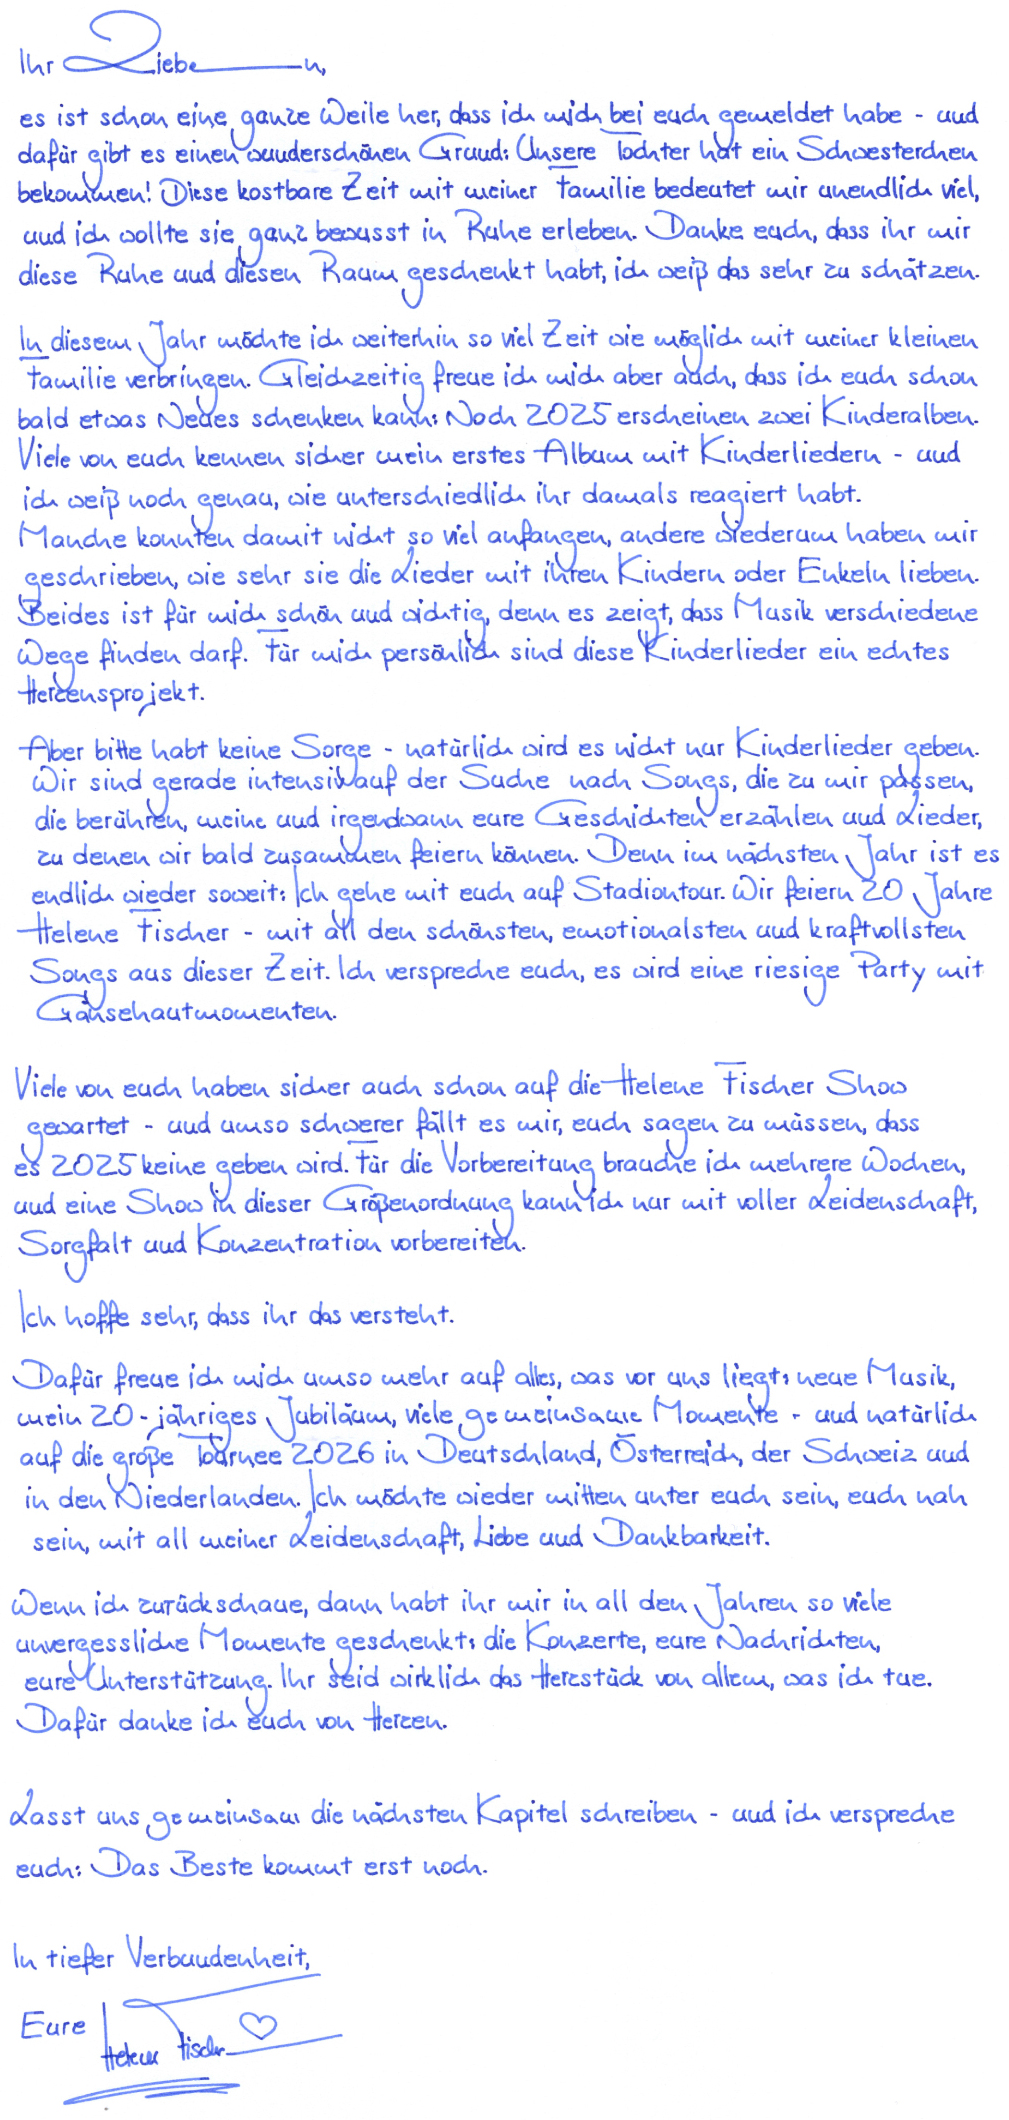 Ihr Lieben,
es ist schon eine ganze Weile her, dass ich mich bei euch gemeldet habe - und
dafür gibt es einen wunderschönen Grund: Unsere Tochter hat ein Schwesterchen
bekommen! Diese kostbare Zeit mit meiner Familie bedeutet mir unendlich viel,
und ich wollte sie ganz bewusst in Ruhe erleben. Danke euch, dass ihr mir
diese Ruhe und diesen Raum geschenkt habt, ich weiß das sehr zu schätzen.
In diesem Jahr möchte ich weiterhin so viel Zeit wie möglich mit meiner kleinen
Familie verbringen. Gleichzeitig freue ich mich aber auch, dass ich euch schon
bald etwas Neues schenken kann: Noch 2025 erscheinen zwei Kinderalben.
Viele von euch kennen sicher mein erstes Album mit Kinderliedern - und
ich weiß noch genau, wie unterschiedlich ihr damals reagiert habt.
Manche konnten damit nicht so viel anfangen, andere wiederum haben mir
geschrieben, wie sehr sie die Lieder mit ihren Kindern oder Enkeln lieben.
Beides ist für mich schön und wichtig, denn es zeigt, dass Musik verschiedene
Wege finden darf. Für mich persönlich sind diese Kinderlieder ein echtes
Herzensprojekt.
Aber bitte habt keine Sorge - natürlich wird es nicht nur Kinderlieder geben.
Wir sind gerade intensiv auf der Suche nach Songs, die zu mir passen,
die berühren, meine und irgendwann eure Geschichten erzählen und Lieder,
zu denen wir bald zusammen feiern können. Denn im nächsten Jahr ist es
endlich wieder soweit: Ich gehe mit euch auf Stadiontour. Wir feiern 20 Jahre
Helene Fischer - mit all den schönsten, emotionalsten und kraftvollsten
Songs aus dieser Zeit. Ich verspreche euch, es wird eine riesige Party mit
Gänsehautmomenten.
Viele von euch haben sicher auch schon auf die Helene Fischer Show
gewartet - und umso schwerer fällt es mir, euch sagen zu müssen, dass
es 2025 keine geben wird. Für die Vorbereitung brauche ich mehrere Wochen,
und eine Show in dieser Größenordnung kann ich nur mit voller Leidenschaft,
Sorgfalt und Konzentration vorbereiten.
Ich hoffe sehr, dass ihr das versteht.
Dafür freue ich mich umso mehr auf alles, was vor uns liegt: neue Musik,
mein 20-jähriges Jubiläum, viele gemeinsame Momente - und natürlich
auf die große Tournee 2026 in Deutschland, Österreich, der Schweiz und
in den Niederlanden. Ich möchte wieder mitten unter euch sein, euch nah
sein, mit all meiner Leidenschaft, Liebe und Dankbarkeit.
Wenn ich zurückschaue, dann habt ihr mir in all den Jahren so viele
unvergessliche Momente geschenkt: die Konzerte, eure Nachrichten,
eure Unterstützung. Ihr seid wirklich das Herzstück von allem, was ich tue.
Dafür danke ich euch von Herzen.
Lasst uns gemeinsam die nächsten Kapitel schreiben - und ich verspreche
euch: Das Beste kommt erst noch.
In tiefer Verbundenheit,
Eure
Helene Fischer